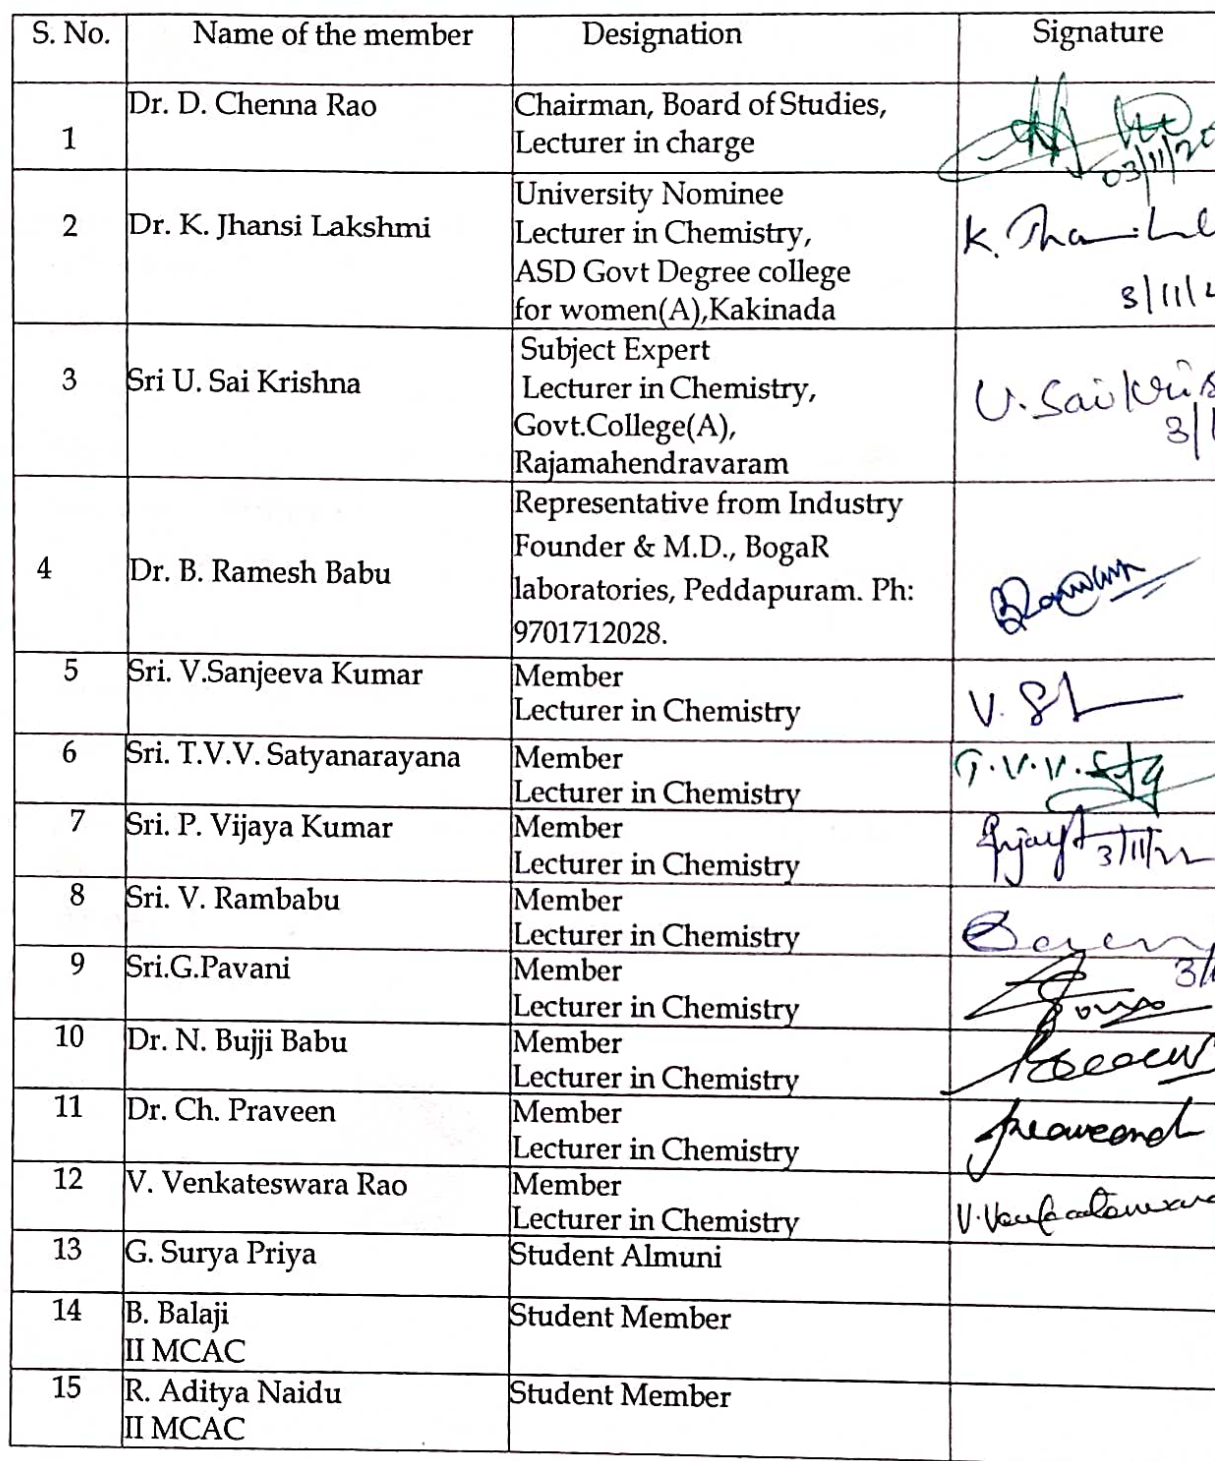 S. No. Name of the member Designation Signature
1 Dr. D. Chenna Rao Chairman, Board of Studies,
Lecturer in charge
03/11/20
2 Dr. K. Jhansi Lakshmi University Nominee
Lecturer in Chemistry,
ASD Govt Degree college
for women(A),Kakinada
K.
3/11/2
3 Sri U. Sai Krishna Subject Expert
Lecturer in Chemistry,
Govt.College(A),
Rajamahendravaram
U. Sai Kris
3/1
4 Dr. B. Ramesh Babu Representative from Industry
Founder & M.D., BogaR
laboratories, Peddapuram. Ph:
9701712028.
5 Sri. V.Sanjeeva Kumar Member
Lecturer in Chemistry
V.
6 Sri. T.V.V. Satyanarayana Member
Lecturer in Chemistry
T.V.V.
7 Sri. P. Vijaya Kumar Member
Lecturer in Chemistry
3/11/22
8 Sri. V. Rambabu Member
Lecturer in Chemistry
3/
9 Sri.G.Pavani Member
Lecturer in Chemistry
10 Dr. N. Bujji Babu Member
Lecturer in Chemistry
11 Dr. Ch. Praveen Member
Lecturer in Chemistry
12 V. Venkateswara Rao Member
Lecturer in Chemistry
V.
13 G. Surya Priya Student Almuni
14 B. Balaji Student Member
II MCAC
15 R. Aditya Naidu Student Member
II MCAC